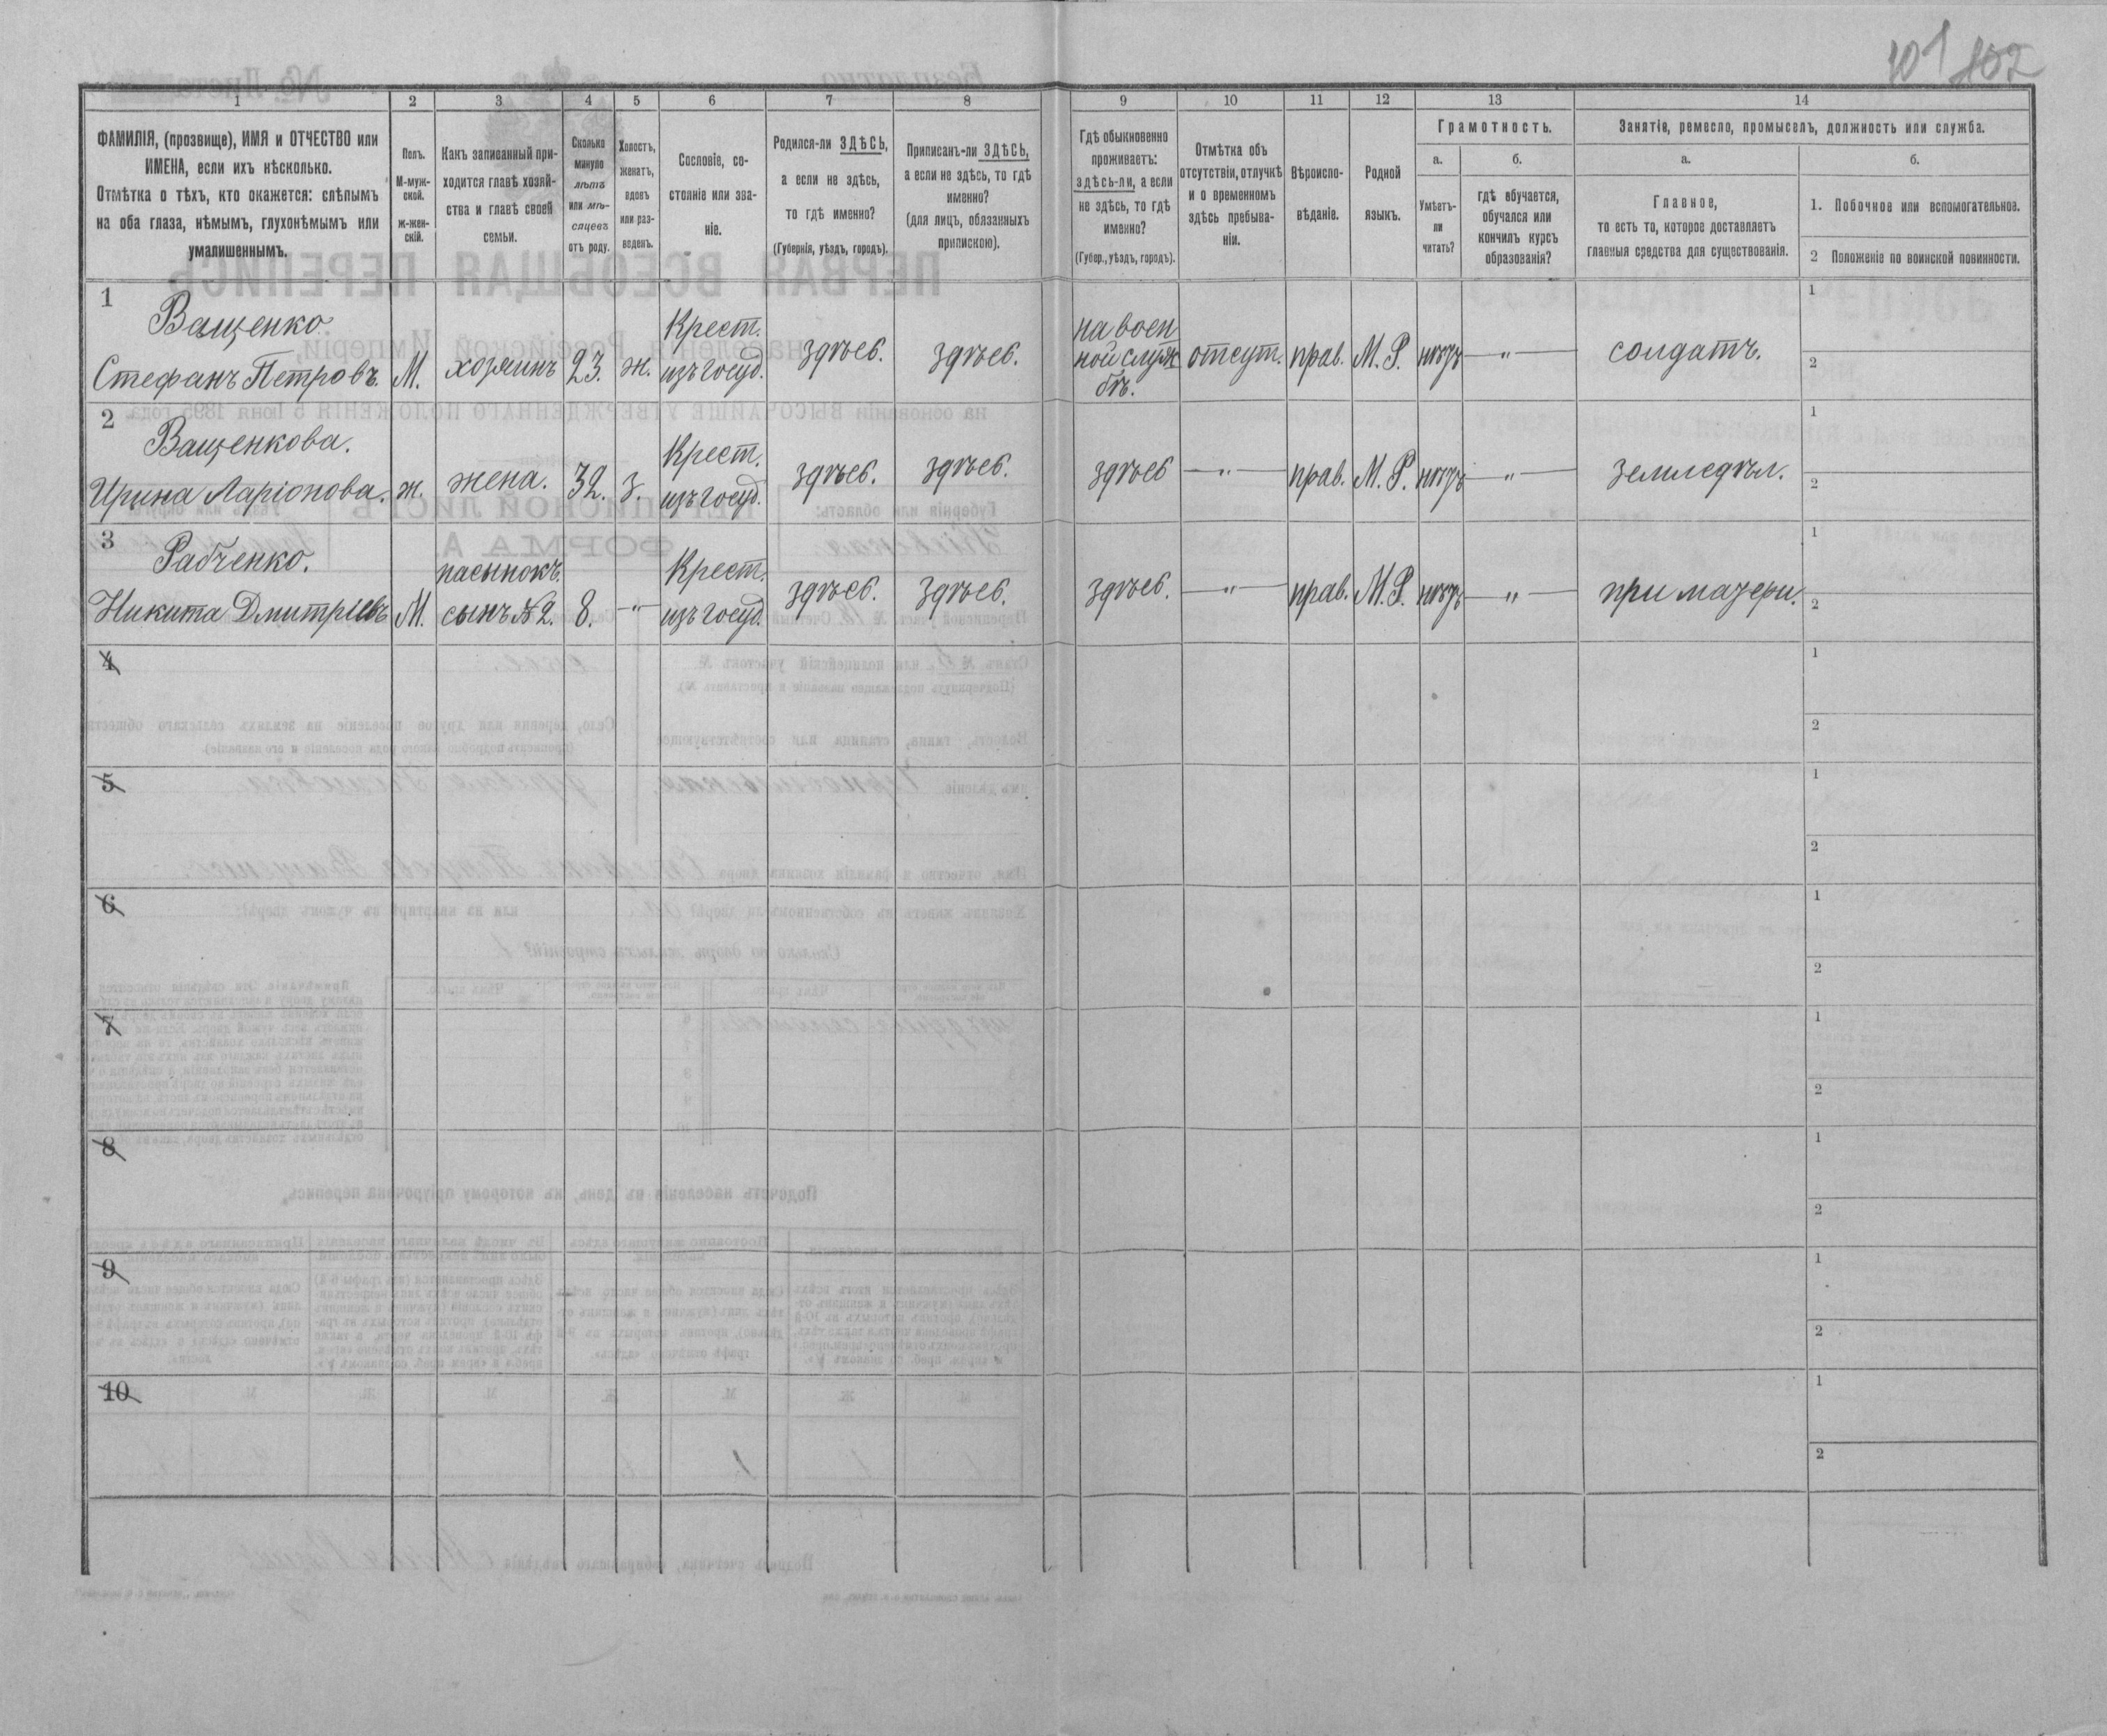 101 102
1 2 3 4 5 6 7 8 9 10 11 12 13 14
ФАМИЛІЯ, (прозвище), ИМЯ и ОТЧЕСТВО или
ИМЕНА, если ихъ нѣсколько.
Отмѣтка о тѣхъ, кто окажется: слѣпымъ
на оба глаза, нѣмымъ, глухонѣмымъ или
умалишеннымъ.
Полъ.
М-муж-
ской.
ж-жен-
скій.
Какъ записанный при-
ходится главѣ хозяй-
ства и главѣ своей
семьи.
Сколько
минуло
лѣтъ
или мѣ-
сяцевъ
отъ роду.
Холостъ,
женатъ,
вдовъ
или раз-
веденъ.
Сословіе, со-
стояніе или зва-
ніе.
Родился-ли ЗДѢСЬ,
а если не здѣсь,
то гдѣ именно?
(Губернія, уѣздъ, городъ).
Приписанъ-ли ЗДѢСЬ,
а если не здѣсь, то гдѣ
именно?
(для лицъ, обязанныхъ
припискою).
Гдѣ обыкновенно
проживаетъ:
здѣсь-ли, а если
не здѣсь, то гдѣ
именно?
(Губер., уѣздъ, городъ).
Отмѣтка объ
отсутствіи, отлучкѣ
и о временномъ
здѣсь пребыва-
ніи.
Вѣроиспо-
вѣданіе.
Родной
языкъ.
Грамотность.
а. б.
Умѣетъ-
ли
читать?
гдѣ обучается,
обучался или
кончилъ курсъ
образованія?
Занятіе, ремесло, промыселъ, должность или служба.
а. б.
Главное,
то есть то, которое доставляетъ
главныя средства для существованія.
1. Побочное или вспомогательное.
2 Положеніе по воинской повинности.
1
Ващенко
Стефанъ Петровъ М. хозяинъ 23. ж. Крест. изъ госуд. здѣсь. здѣсь. на воен ной служ бѣ. отсут. прав. М. Р. нѣтъ —"— солдатъ. 1 2
2
Ващенкова.
Ирина Ларіонова. ж. жена. 32. з. Крест. изъ госуд. здѣсь. здѣсь. здѣсь —"— прав. М. Р. нѣтъ —"— земледѣл. 1 2
3
Рабченко.
Никита Дмитріевъ М. пасынокъ. сынъ №2. 8. —"— Крест. изъ госуд. здѣсь. здѣсь. здѣсь. —"— прав. М. Р. нѣтъ —"— при матери. 1 2
4 1 2
5 1 2
6 1 2
7 1 2
8 1 2
9 1 2
10 1 2